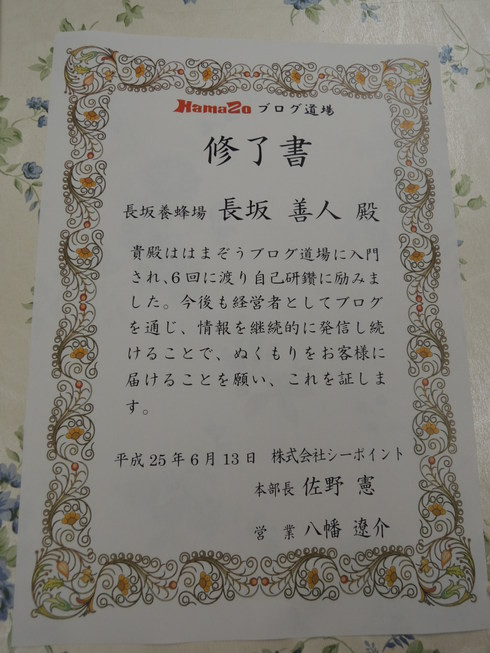 HamaZo ブログ道場
修了書
長坂養蜂場 長坂 善人 殿
貴殿ははまぞうブログ道場に入門
され、6回に渡り自己研鑽に励みま
した。今後も経営者としてブログ
を通じ、情報を継続的に発信し続
けることで、ぬくもりをお客様に
届けることを願い、これを証しま
す。
平成25年6月13日 株式会社シーポイント
本部長 佐野 憲
営業 八幡 遼介